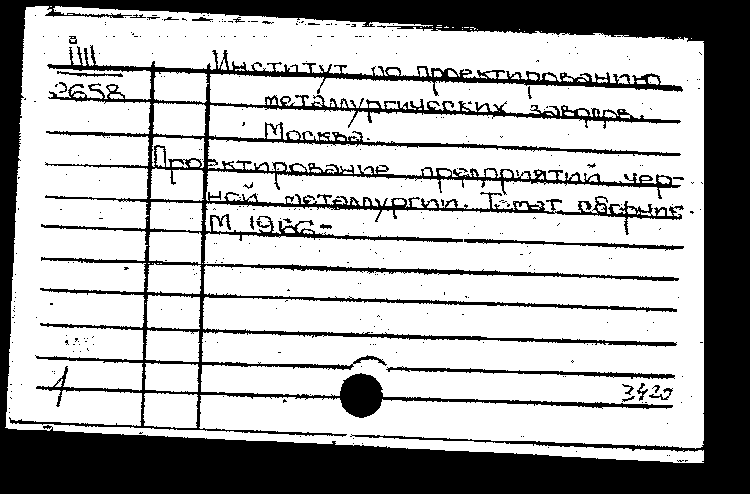 Институт по проектированию
2658
металлургических заводов.
Москва.
Проектирование предприятий чер-
ной металлургии. Темат. сборник.
М, 1966-
3420